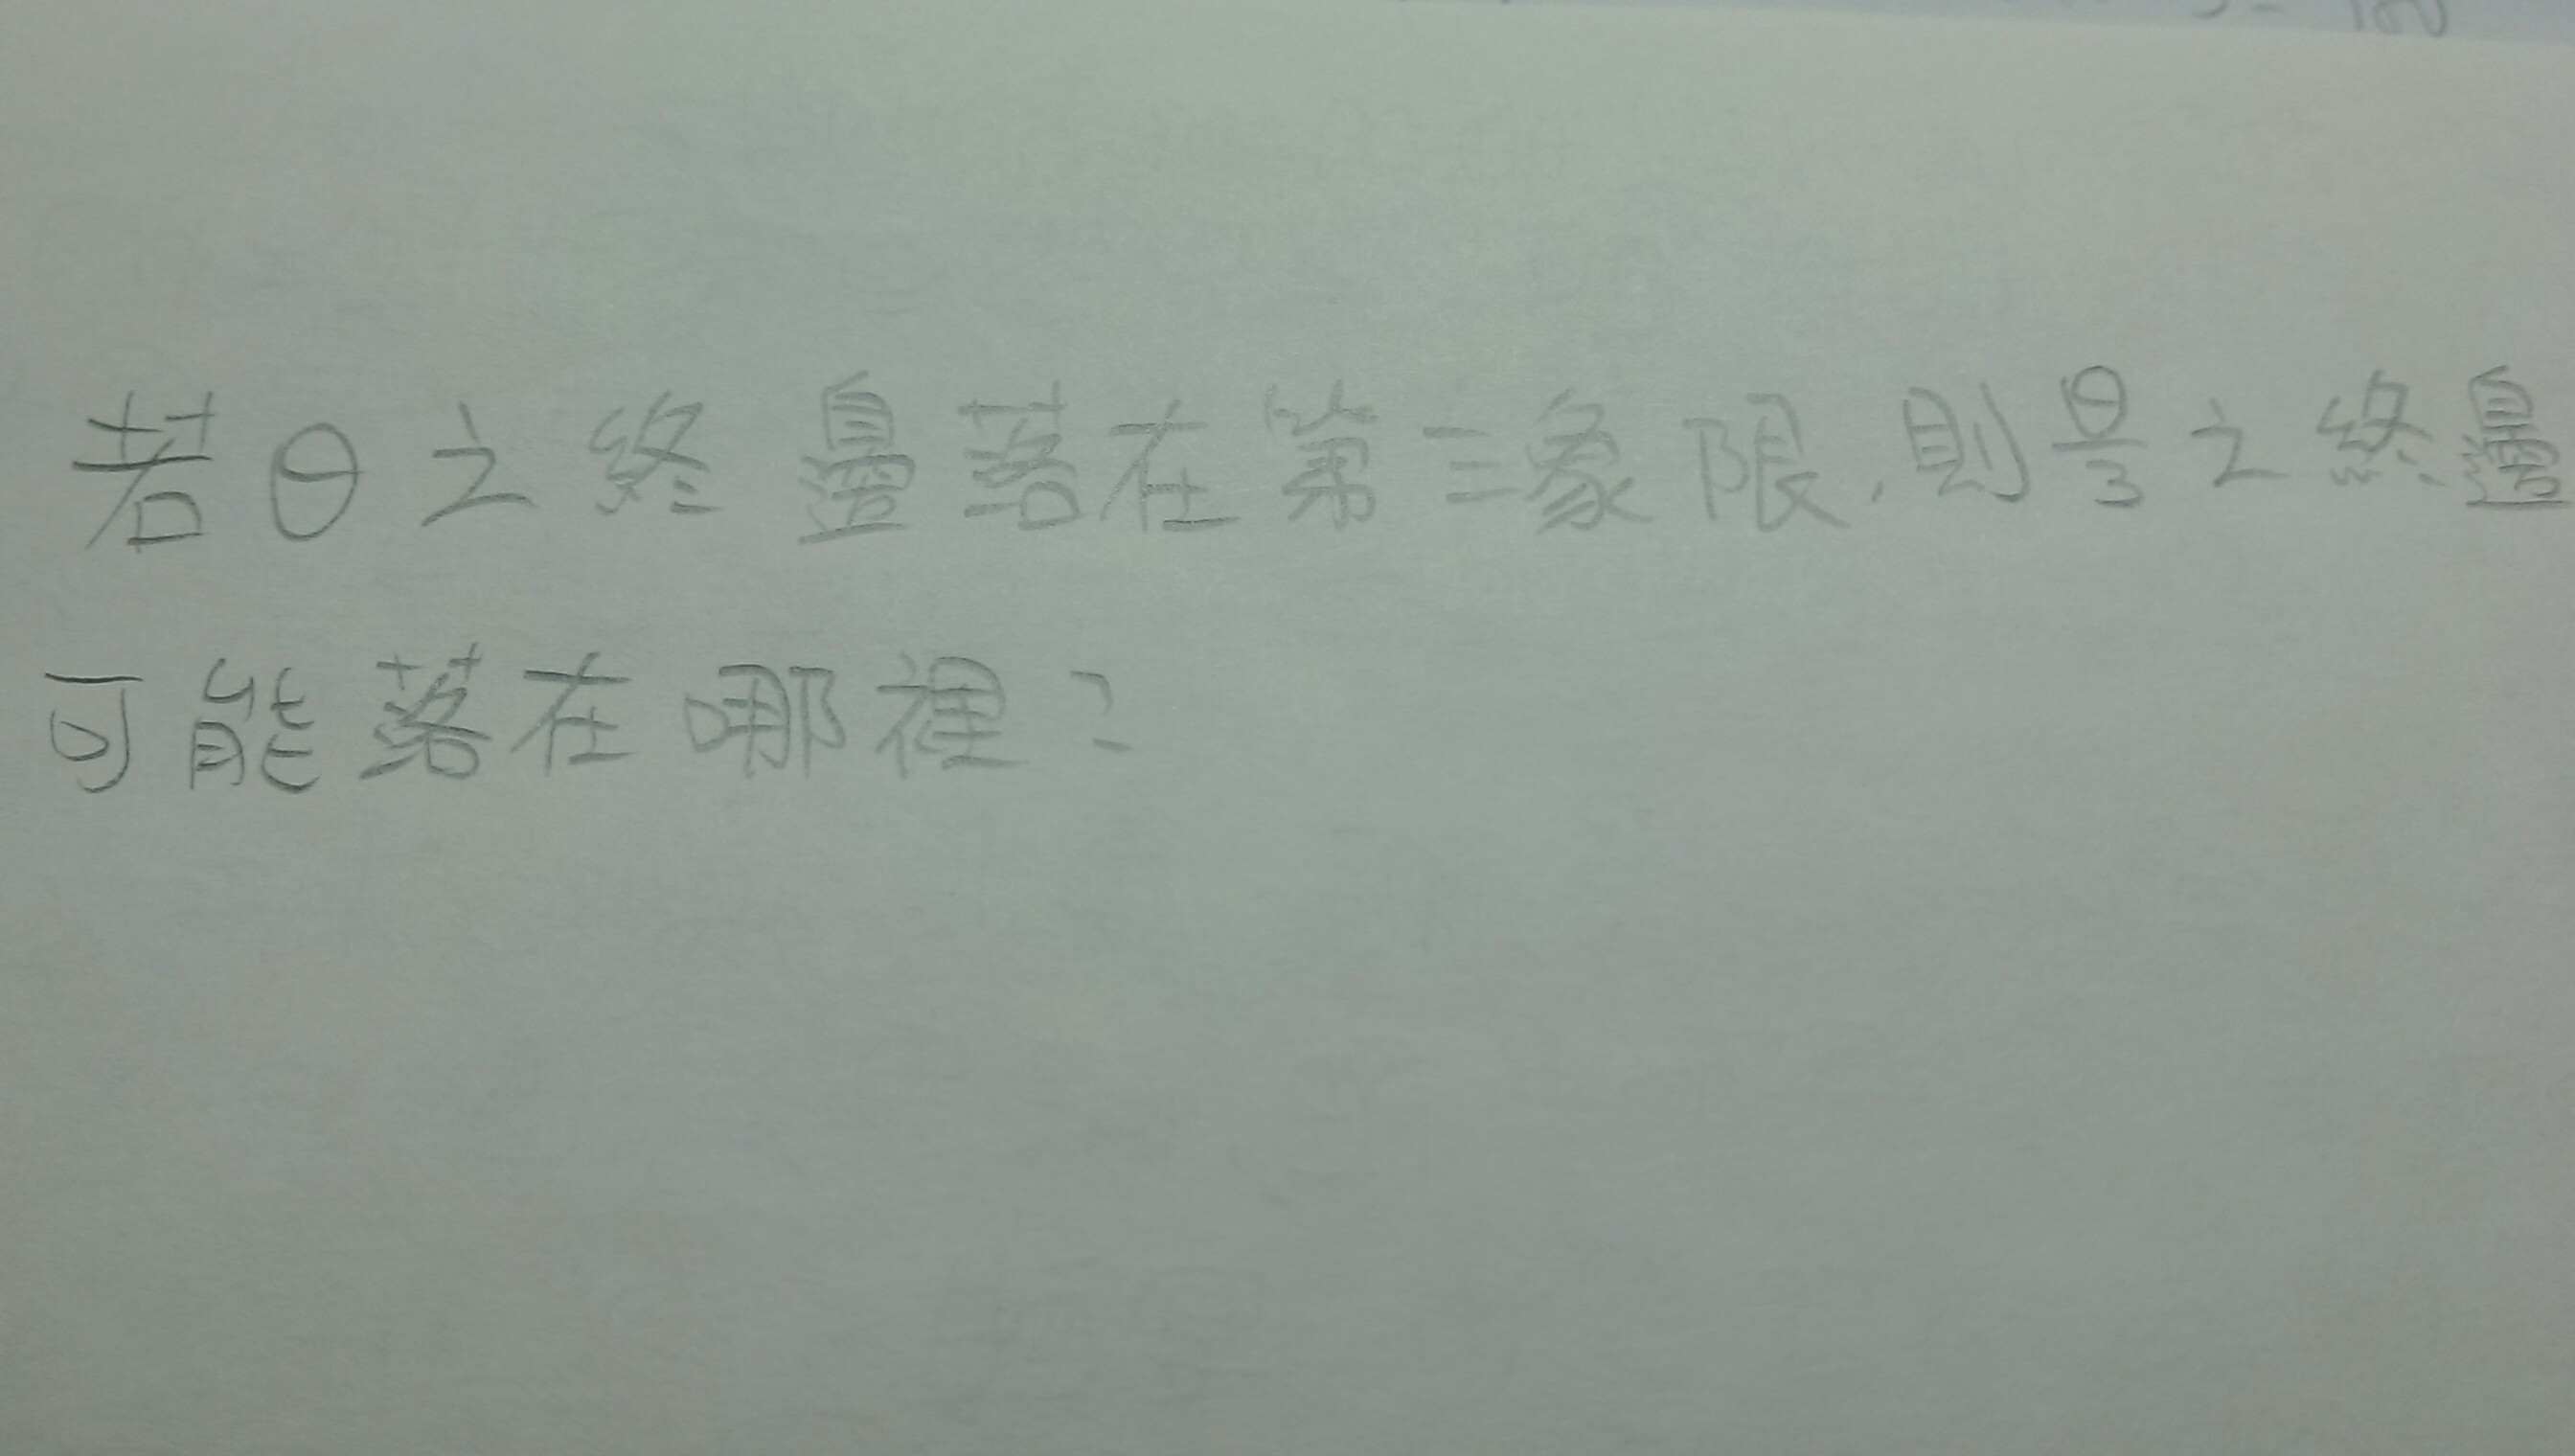 若θ之終邊落在第三象限,則θ/3之終邊
可能落在哪裡?